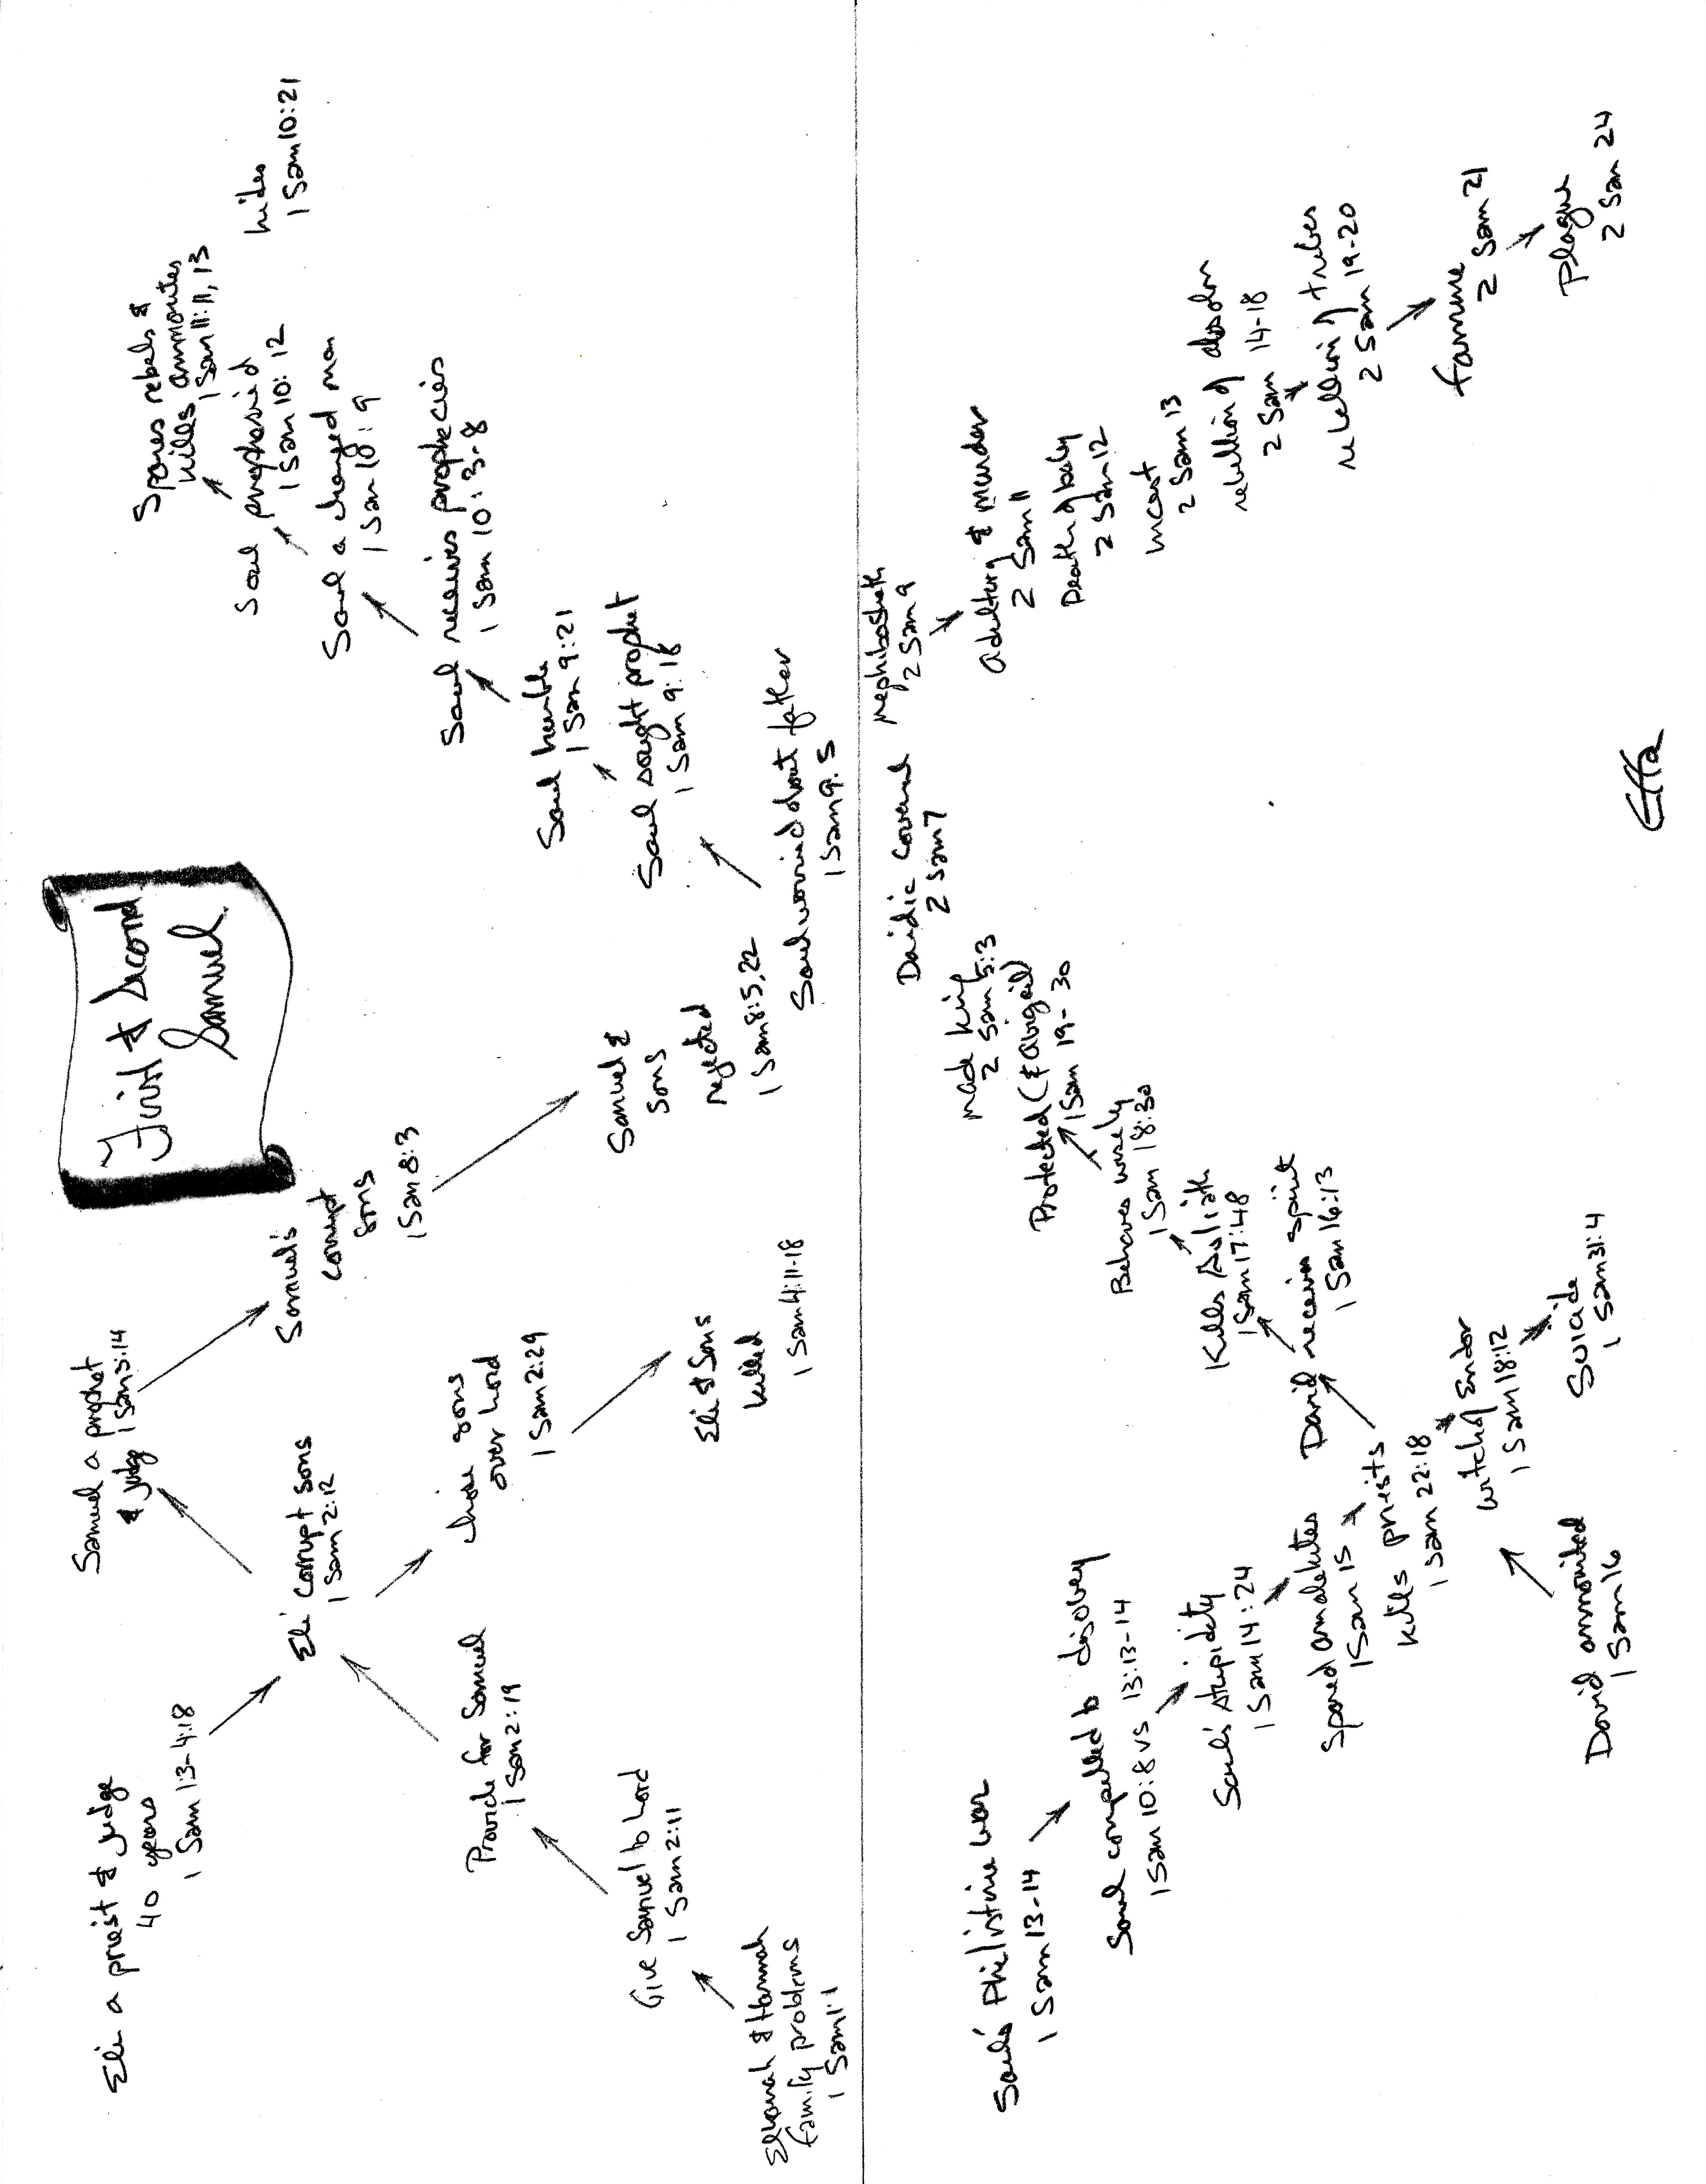 First & Second
Samuel
Eli a priest & judge
40 years
1 Sam 1:3-4:18
Eli corrupt sons
1 Sam 2:12
Samuel a prophet
& judge 1 Sam 3:14
Samuel's
corrupt
sons
1 Sam 8:3
Samuel &
sons
rejected
1 Sam 8:5,22
chose sons
over Lord
1 Sam 2:29
Eli & Sons
killed
1 Sam 4:11-18
Provide for Samuel
1 Sam 2:19
Give Samuel to Lord
1 Sam 2:11
Elkanah & Hannah
family problems
1 Sam 1:1
Saul worried about father
1 Sam 9:5
Saul sought prophet
1 Sam 9:18
Saul humble
1 Sam 9:21
Saul receives prophecies
1 Sam 10:3-8
Saul a changed man
1 Sam 10:9
Saul prophesied
1 Sam 10:12
Spares rebels &
kills ammonites
1 Sam 11:11,13
hides
1 Sam 10:21
Saul's Philistine war
1 Sam 13-14
Saul compelled to disobey
1 Sam 10:8 vs 13:13-14
Saul's stupidity
1 Sam 14:24
Spared amalekites
1 Sam 15
Kills priests
1 Sam 22:18
witch of Endor
1 Sam 18:12
Suicide
1 Sam 31:4
David annointed
1 Sam 16
David receives spirit
1 Sam 16:13
Kills Goliath
1 Sam 17:48
Behaves wisely
1 Sam 18:30
Protected (& Abigail)
1 Sam 19-30
made king
2 Sam 5:3
Davidic covenant
2 Sam 7
mephibosheth
2 Sam 9
adultery & murder
2 Sam 11
Death of baby
2 Sam 12
incest
2 Sam 13
rebellion of absolom
2 Sam 14-18
rebellion of tribes
2 Sam 19-20
famine
2 Sam 21
Plague
2 Sam 24
Effa